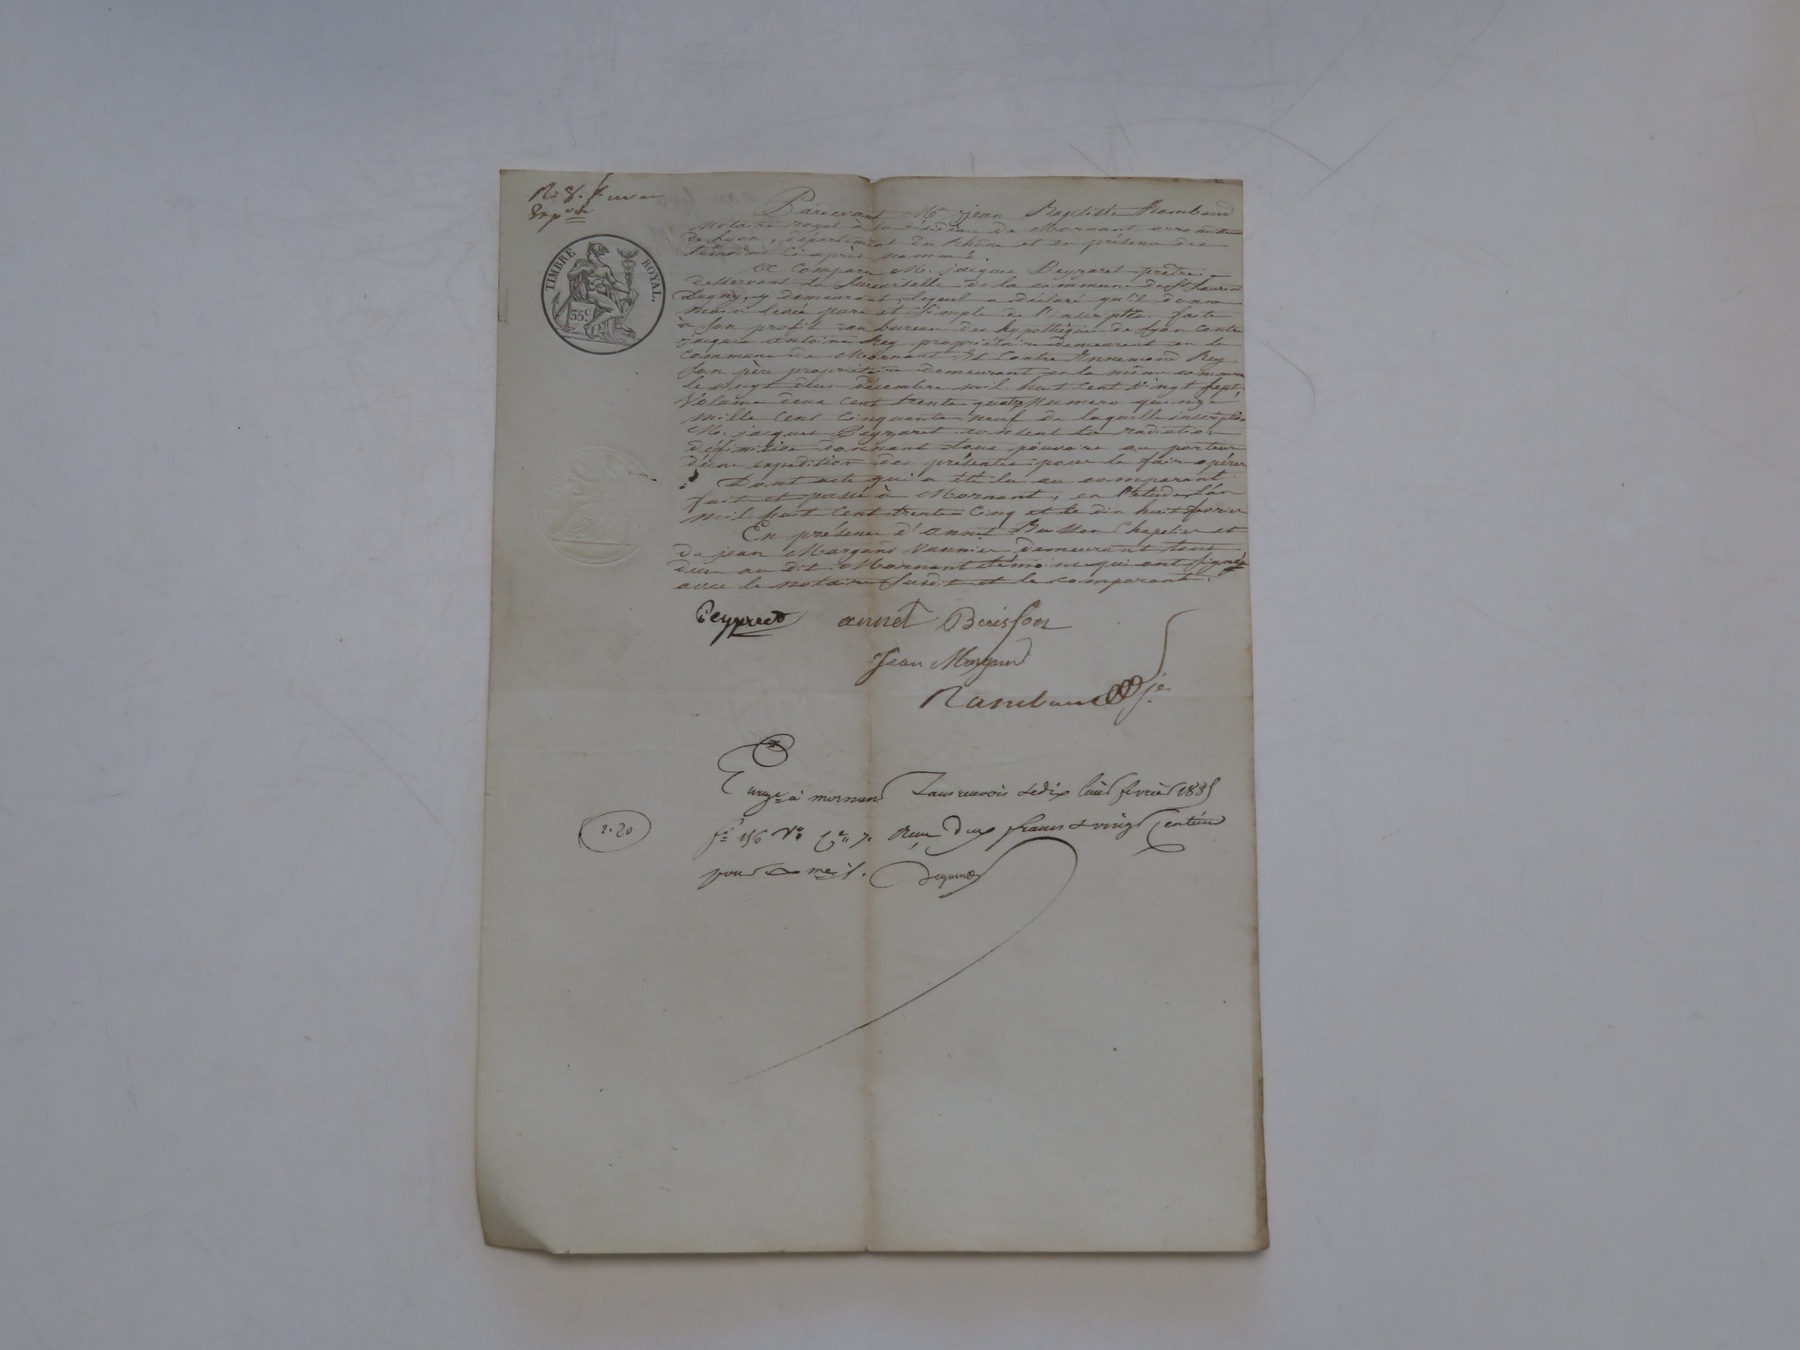 Expon
TIMBRE ROYAL.
35 c
Pardevant Me jean Baptiste Rambaud
Notaire royal à la résidence de Mornant arrondissmt
de Lyon, département du Rhône et en présence des
témoins ci après nommés.
A Comparu M. jacques Peyzaret prêtre
desservant la Succursalle de la commune de St Laurent
Dagny, y demeurant, lequel a déclaré qu'il donne
main levée pure et simple de l'inscription faite
à son profit au bureau des hypothèques de Lyon contre
jacques antoine Rey propriétaire demeurant en la
commune de Mornant, Et contre Ennemond Rey
son père propriétaire demeurant en la même commune
le vingt deux décembre mil huit cent vingt sept,
Volume deux cent trente quatre Numero quinze
mille cent cinquante neuf de laquelle inscription
M. jacques Peyzaret consent la radiation
définitive donnant tous pouvoirs au porteur
d'une expedition des présentes pour le faire opérer
Dont acte qui a été lu au comparant
fait et passé à Mornant, en l'etude, l'an
mil huit cent trente cinq et le dix huit février
En présence d'annet Buisson Chapelier et
de jean Margand Vannier demeurant tous
deux au dit Mornant témoins qui ont signés
avec le notaire susdit et le comparant.
Peyzaret annet Buisson
Jean Margand
Rambaud
Enregé à mornant Sans renvois le dix huit février 1835
2.20
fo 156 Vo Ce 7. Reçu deux francs & vingt centimes
pour